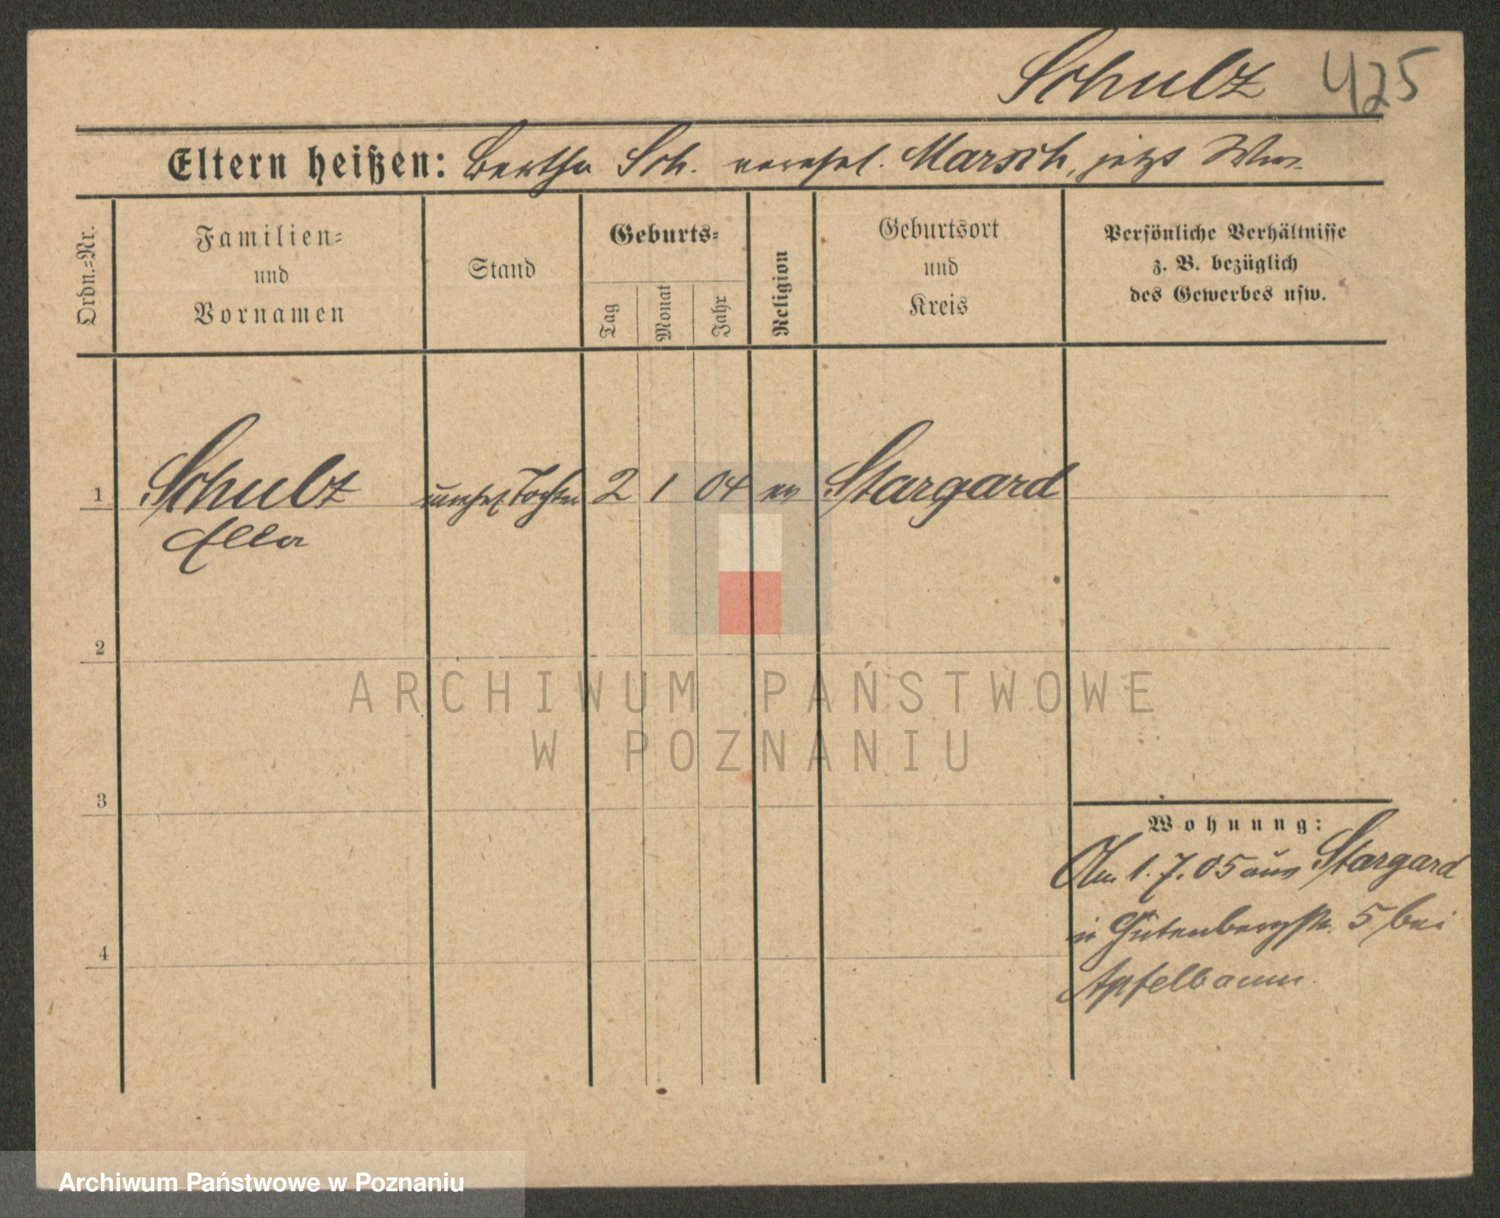 Schulz 425
Eltern heißen: Bertha Sch. verehel. Marsch, jetzt
Ordn.-Nr.
Familien-
und
Vornamen
Stand
Geburts-
Tag
Monat
Jahr
Religion
Geburtsort
und
Kreis
Persönliche Verhältnisse
z. B. bezüglich
des Gewerbes usw.
1 Schulz Tochter 2 1 04 ev Stargard
Ella
2
3
4
Wohnung:
Am 1.7.05 aus Stargard
in Gutenbergstr. 5 bei
Apfelbaum
ARCHIWUM PAŃSTWOWE
W POZNANIU
Archiwum Państwowe w Poznaniu